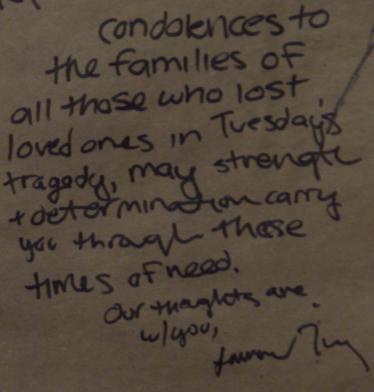 condolences to
the families of
all those who lost
loved ones in Tuesday's
tragedy, may strength
+ determination carry
you through these
times of need.
Our thoughts are
w/you,